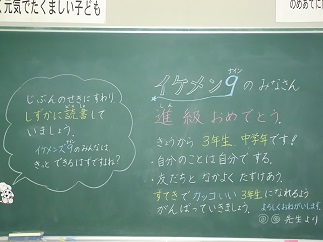 く元気でたくましい子ども
のめあてに
じぶんのせきにすわり、
しずかに読書して
いましょう。
イケメンズ9のみんなは、
きっとできるはずですよね?
イケメン9のみなさん
ナイン
進級おめでとう。
きょうから3年生 中学年です!
・自分のことは自分でする。
・友だちとなかよくたすけあう。
すてきでカッコいい3年生になれるよう
がんばっていきましょう。よろしくおねがいします。
先生より